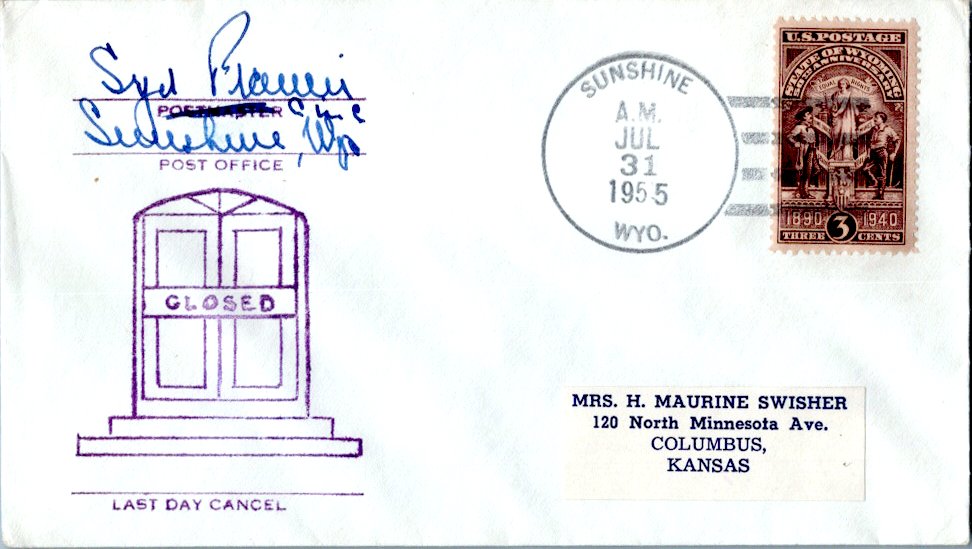 Syd
POSTMASTER
Sunshine, Wyo
POST OFFICE
CLOSED
LAST DAY CANCEL
SUNSHINE
A.M.
JUL
31
1955
WYO.
U.S. POSTAGE
STATE OF WYOMING
50TH ANNIVERSARY
EQUAL RIGHTS
1890 1940
THREE 3 CENTS
MRS. H. MAURINE SWISHER
120 North Minnesota Ave.
COLUMBUS,
KANSAS